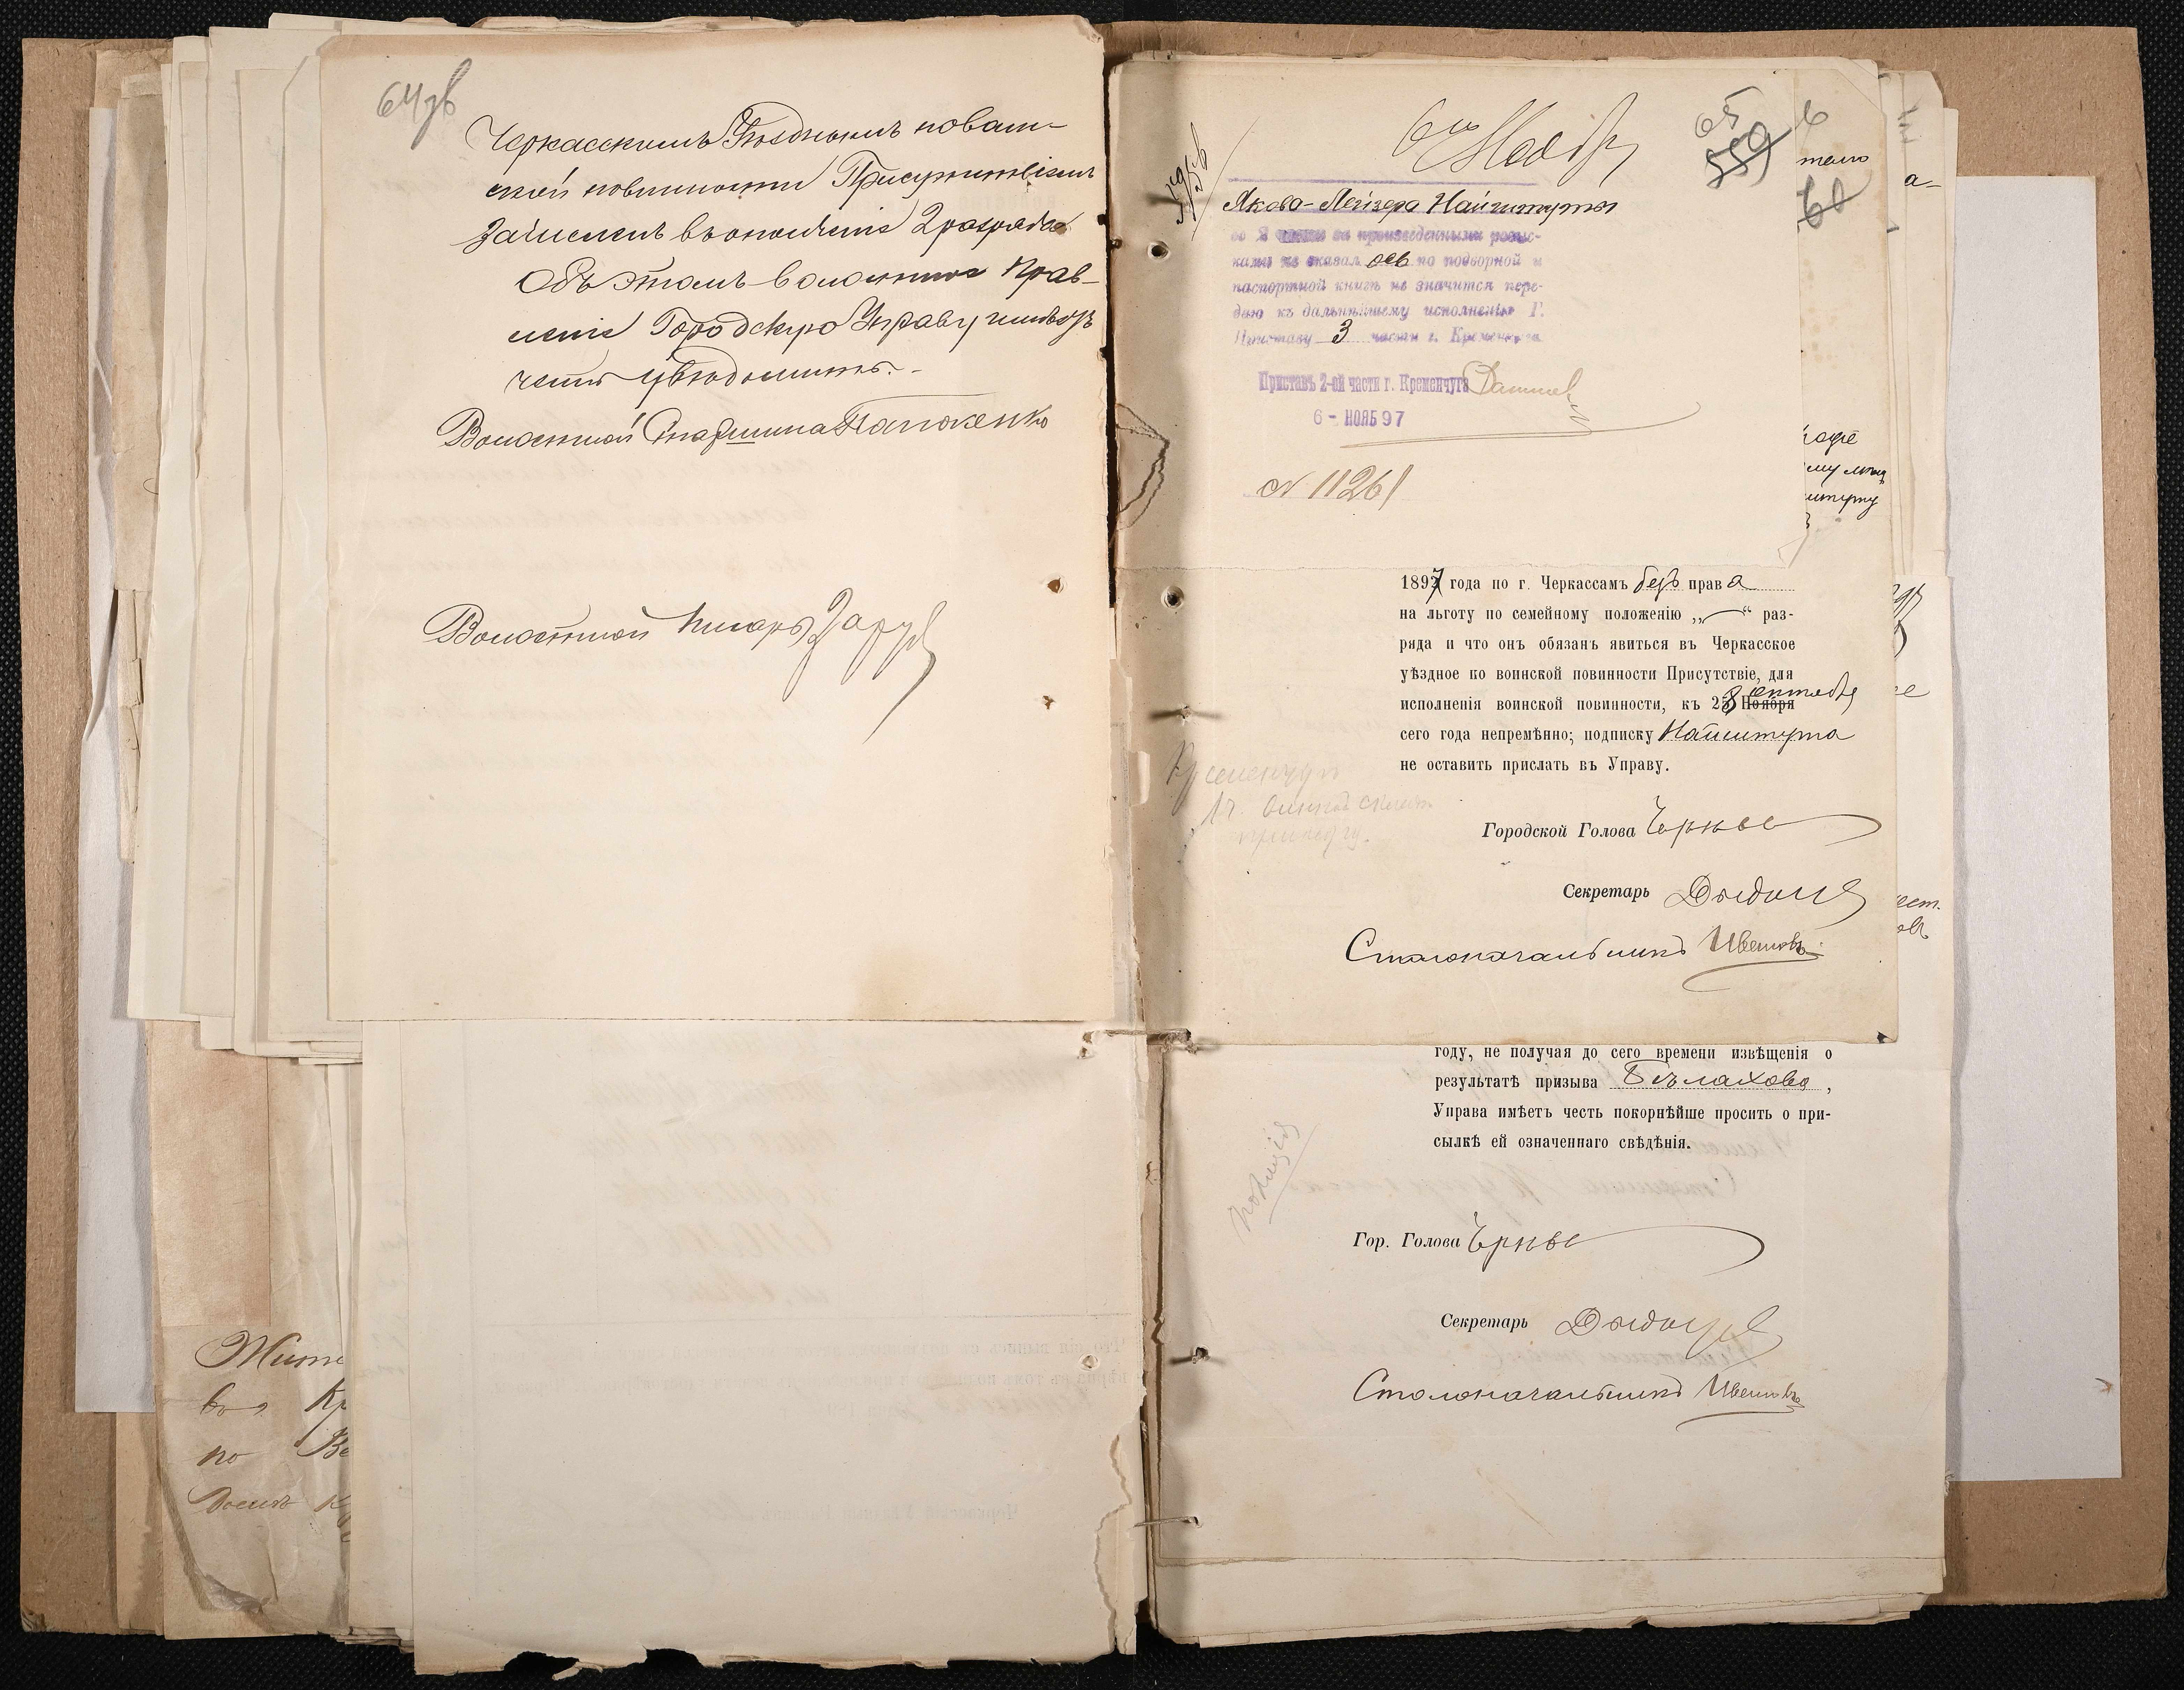 64зв
Черкасскимъ Уѣзднымъ по воин-
ской повинности Присутствіемъ
зачисленъ въ ополченіе 2 разряда
Объ этомъ волостное Прав-
леніе Городскую Управу имѣетъ
честь увѣдомить.
Волостной Старшина Папоженко
Волостной Писарь
65
359
6 Нояб
Якова-Лейзера Найштута
во 2 части за произведенными розыс-
ками не оказалось по подворной и
паспортной книгѣ не значится пере-
даю къ дальнѣйшему исполненію Г.
Приставу 3 части г. Кременчуга
Приставъ 2-ой части г. Кременчуга
6 - НОЯБ 97
N 11261
1897 года по г. Черкассамъ безъ права
на льготу по семейному положенію „—“ раз-
ряда и что онъ обязанъ явиться въ Черкасское
уѣздное по воинской повинности Присутствіе, для
исполненія воинской повинности, къ 28 Ноября октября
сего года непремѣнно; подписку Найштута
не оставить прислать въ Управу.
Городской Голова
Секретарь
Столоначальникъ Ивановъ
году, не получая до сего времени извѣщенія о
результатѣ призыва Бѣлахова,
Управа имѣетъ честь покорнѣйше просить о при-
сылкѣ ей означеннаго свѣдѣнія.
Гор. Голова
Секретарь
Столоначальникъ Ивановъ
60
а-
Жит
во Кр
по Ве